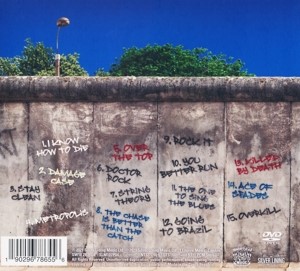 1. I KNOW
HOW TO DIE
2. DAMAGE
CASE
3. STAY
CLEAN
4. METROPOLIS
5. OVER
THE TOP
6. DOCTOR
ROCK
7. STRING
THEORY
8. THE CHASE
IS BETTER
THAN THE
CATCH
9. ROCK IT
10. YOU
BETTER RUN
11. THE ONE
TO SING
THE BLUES
12. GOING
TO BRAZIL
13. KILLED
BY DEATH
14. ACE OF
SPADES
15. OVERKILL
1 90296 78655 6
DVD
SILVER LINING